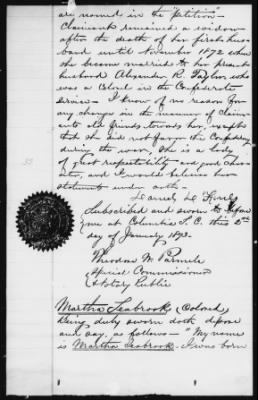 are named in the "petition" -
Claimant remained a widow
after the death of her first hus-
band until November 1872 when
she became married to her present
husband Alexander R. Taylor, who
was a Colonel in the Confederate
service - I know of no reason for
any change in the manner of Claim-
ants old friends towards her, except
that she did not favor the Confederacy
during the war, She is a lady
of great respectability and good char-
acter, and I would believe her
statements under oath -
Subscribed and sworn to before
me at Columbia S.C. this 2nd
day of January 1873.
Theodore W. Parmele
Special Commissioner
& Notary Public
Martha Seabrook, (Colored)
being duly sworn doth depose
and say, as follows - "My name
is Martha Seabrook - I was born